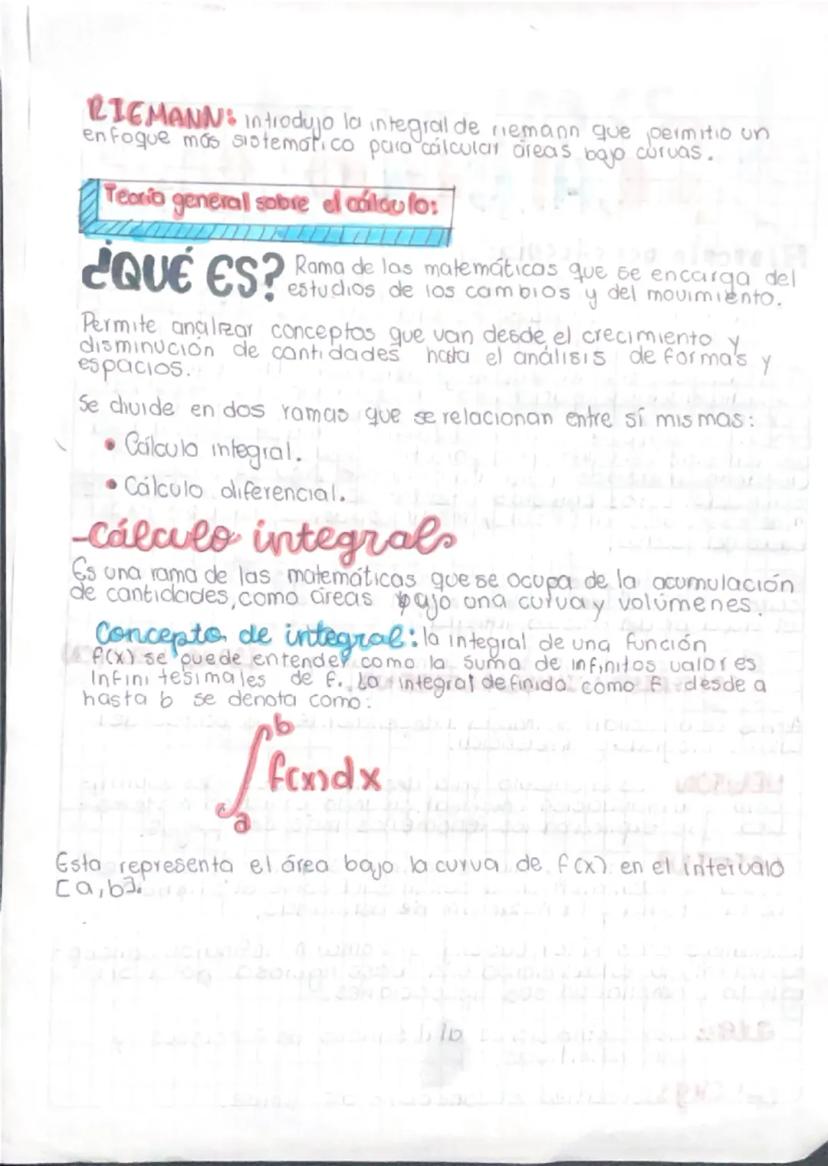 RIEMANN: introdujo la integral de riemann que permitio un
enfoque más sistemático para cálcular áreas bajo curvas.
Teoría general sobre el cálculo:
¿QUÉ ES? Rama de las matemáticas que se encarga del
estudios de los cambios y del movimiento.
Permite analizar conceptos que van desde el crecimiento y
disminución de cantidades hasta el análisis de formas y
espacios.
Se divide en dos ramas que se relacionan entre sí mismas:
• Cálculo integral.
• Cálculo diferencial.
-cálculo integral
Es una rama de las matemáticas que se ocupa de la acumulación
de cantidades, como áreas bajo una curva y volúmenes.
Concepto de integral: la integral de una función
f(x) se puede entender como la suma de infinitos valores
infinitesimales de f. La integral definida como f desde a
hasta b se denota como:
∫ₐᵇ f(x)dx
Esta representa el área bajo la curva de f(x) en el intervalo
[a,b].